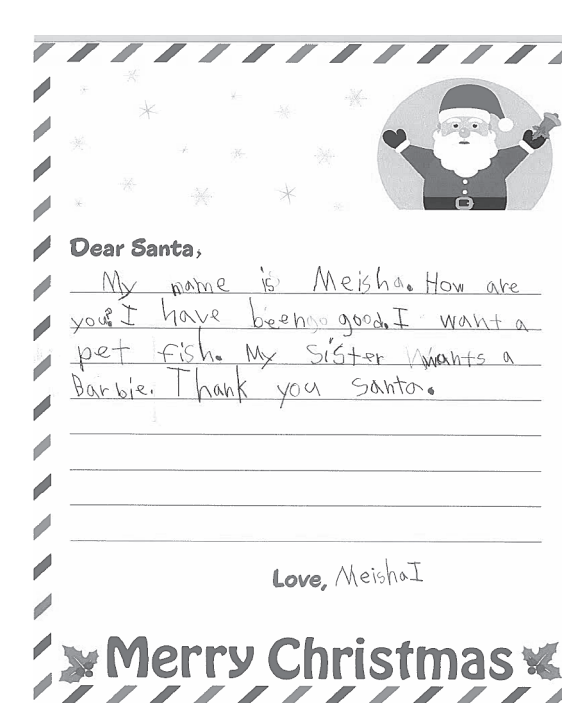 Dear Santa,
My name is Meisha. How are
you? I have been good. I want a
pet fish. My Sister wants a
Barbie. Thank you santa.
Love, Meisha I
Merry Christmas